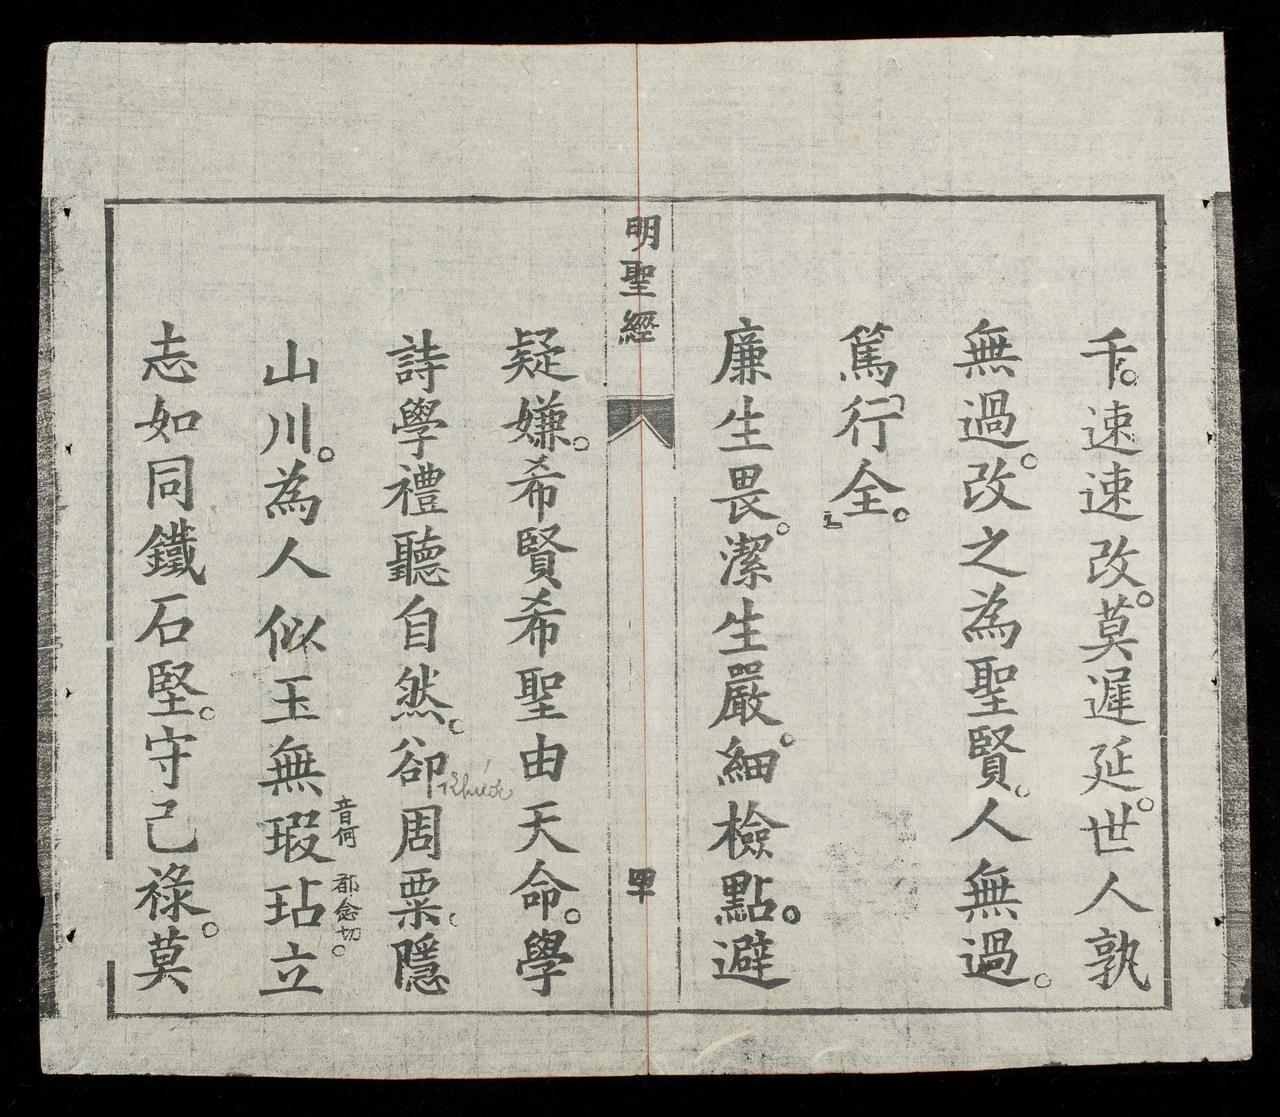 千。速速改。莫遲延。世人孰
無過。改之為聖賢。人無過。
篤行全。
廉生畏。潔生嚴。細檢點。避
明聖經
四十
疑嫌。希賢希聖由天命。學
詩學禮聽自然。卻周粟。隱
Khước
山川。為人似玉無瑕玷立
音何
都念切。
志如同鐵石堅。守己祿。莫